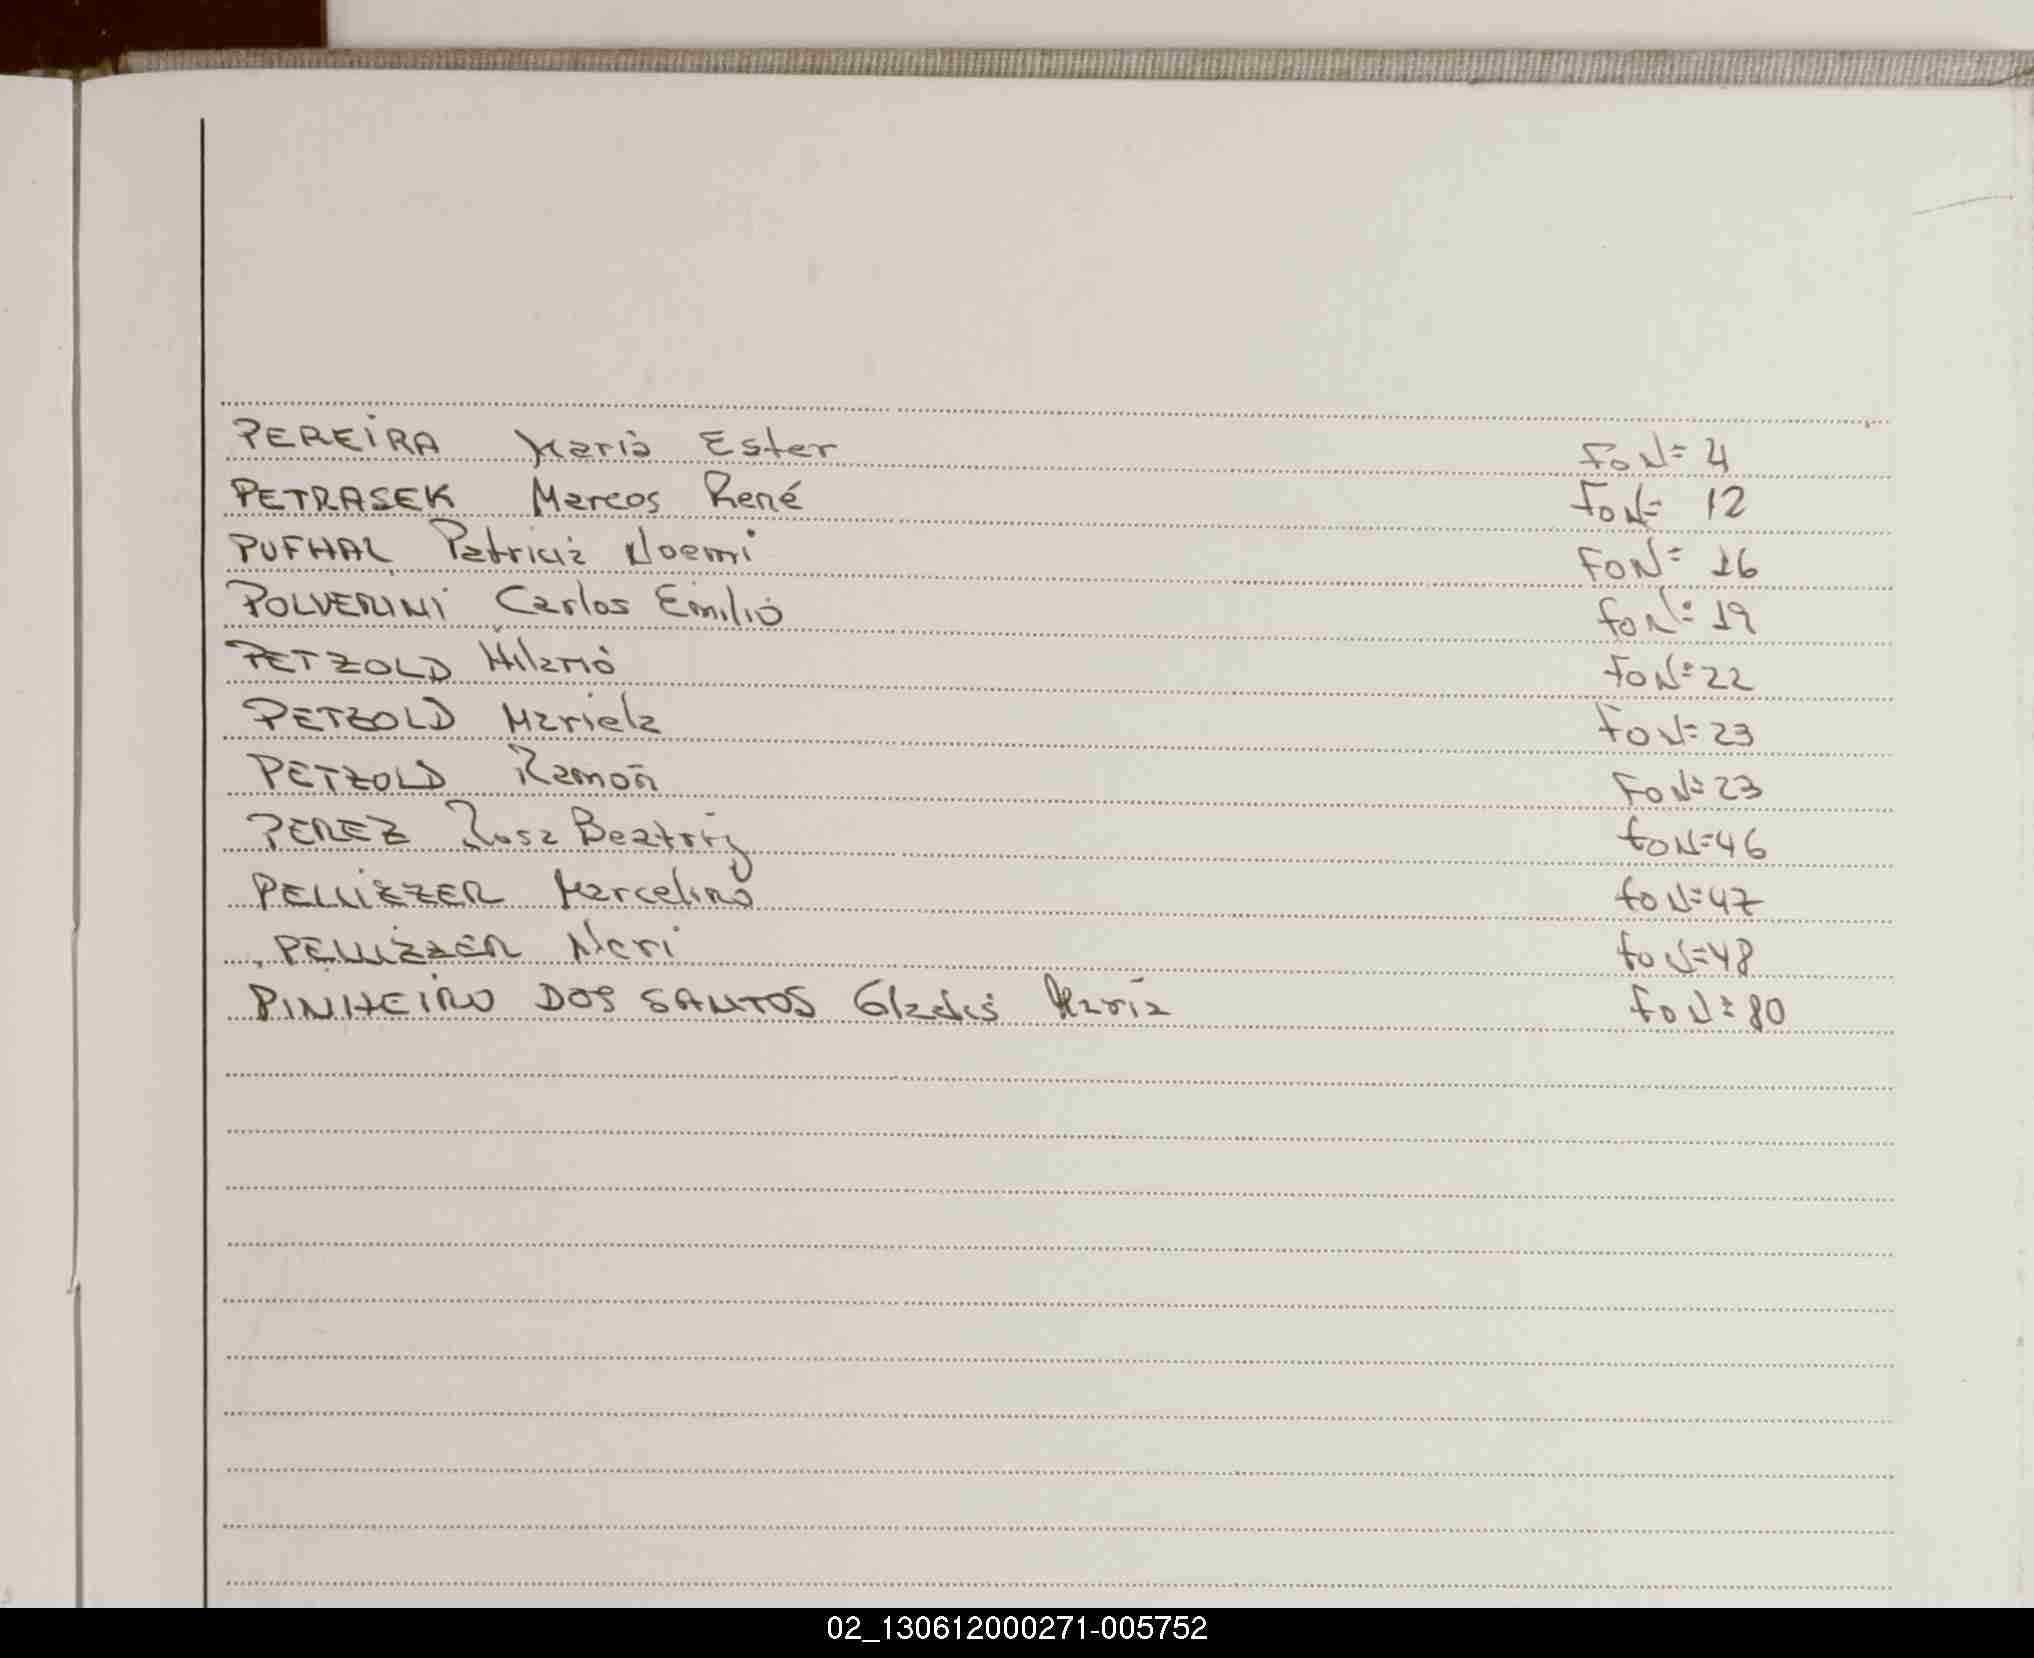 PEREIRA Maria Ester Fo Nº 4
PETRASEK Marcos René Fo Nº 12
PUFHAL Patricia Noemi Fo Nº 16
POLVERINI Carlos Emilio fo Nº 19
PETZOLD Hilario Fo Nº 22
PETZOLD Mariela Fo Nº 23
PETZOLD Ramón Fo Nº 23
PEREZ Rosa Beatriz fo Nº 46
PELLIZZER Marcelino fo Nº 47
PELLIZZER Neri fo Nº 48
PINHEIRO DOS SANTOS Gladis Maria fo Nº 80
02_130612000271-005752